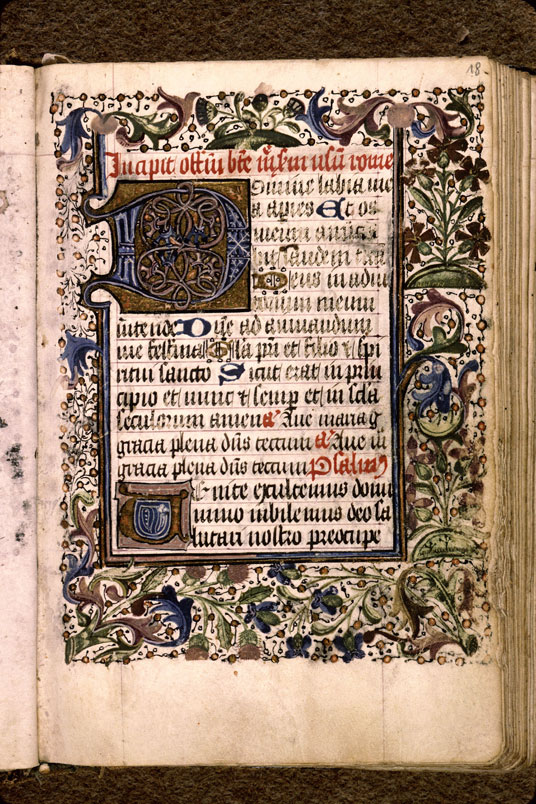 18
Incipit offm bte me sm usu rome
Domine labia me
a apies Et os
meum
laudem tua
Deus in adiu
torium meum
intende Dne ad adiuuandum
me festina Gla pri et filio et spi
ritui sancto Sicut erat in prin
cipio et nunc et semp et in scla
seculorum amen a Aue maria g
gracia plena dns tecum a Aue m
gracia plena dns tecum Psalm9
Uenite exultemus domi
no iubilemus deo sa
lutari nostro preocupe